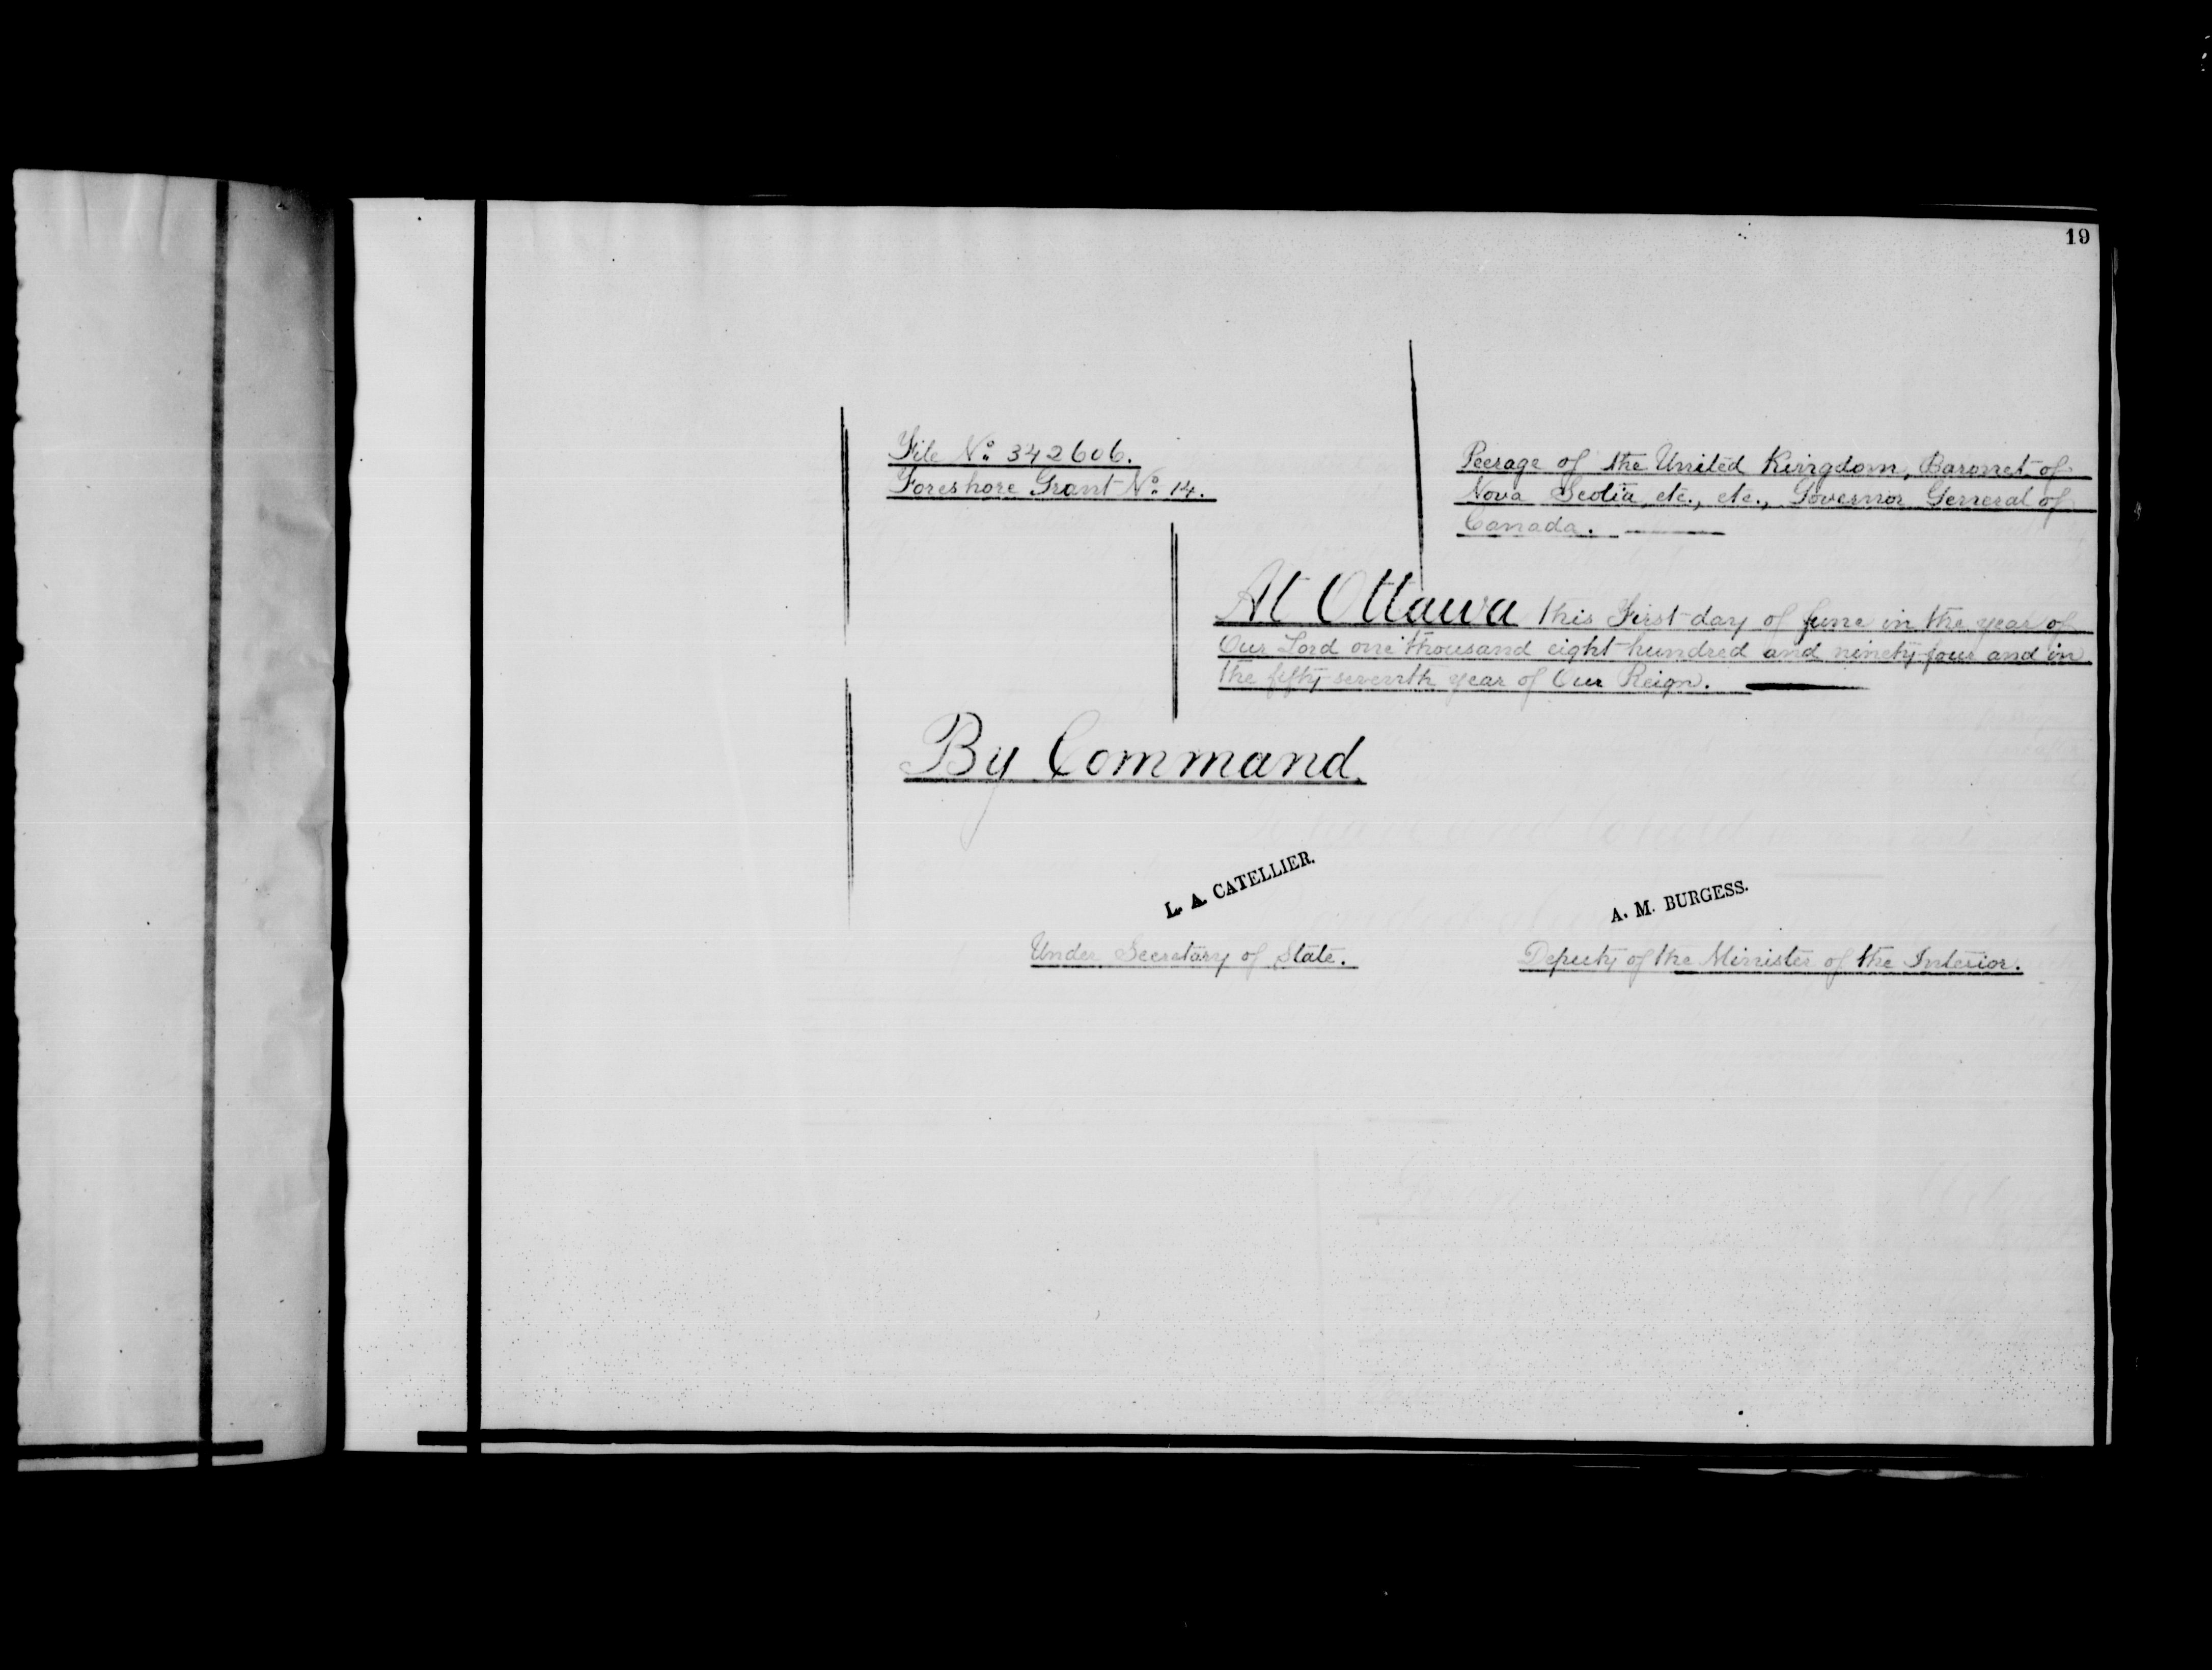 19
File No. 342606.
Foreshore Grant No. 14.
Peerage of the United Kingdom, Baronet of
Nova Scotia, etc., etc., Governor General of
Canada.
At Ottawa this First day of June in the year of
Our Lord one thousand eight hundred and ninety-four and in
the fifty-seventh year of Our Reign.
By Command.
L. A. CATELLIER.
Under Secretary of State.
A. M. BURGESS.
Deputy of the Minister of the Interior.